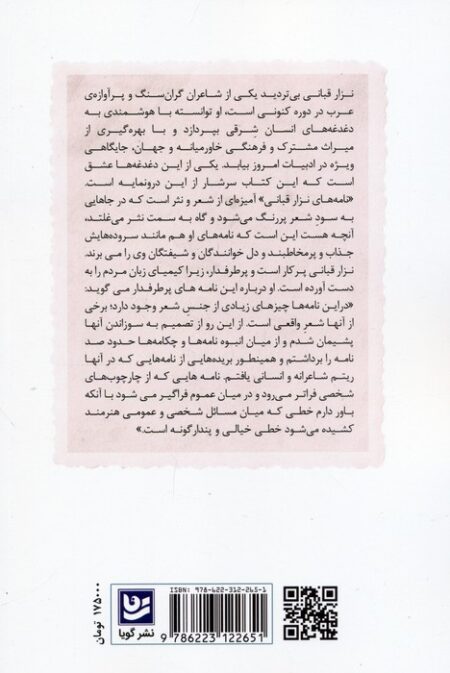 نزار قبانی بی‌تردید یکی از شاعران گران‌سنگ و پرآوازه‌ی
عرب در دوره کنونی است، او توانسته با هوشمندی به
دغدغه‌های انسان شرقی بپردازد و با بهره‌گیری از
میراث مشترک و فرهنگی خاورمیانه و جهان، جایگاهی
ویژه در ادبیات امروز بیابد. یکی از این دغدغه‌ها عشق
است که این کتاب سرشار از این درونمایه است.
«نامه‌های نزار قبانی» آمیزه‌ای از شعر و نثر است که در جاهایی
به سودِ شعر پررنگ می‌شود و گاه به سمت نثر می‌غلتد،
آنچه هست این است که نامه‌های او هم مانند سروده‌هایش
جذاب و پرمخاطبند و دل خوانندگان و شیفتگان وی را می برند.
نزار قبانی پرکار است و پرطرفدار، زیرا کیمیای زبان مردم را به
دست آورده است. او درباره این نامه های پرطرفدار می گوید:
«دراین نامه‌ها چیزهای زیادی از جنسِ شعر وجود دارد؛ برخی از
از آنها شعر واقعی است. از این رو از تصمیم به سوزاندن آنها
پشیمان شدم و از میان انبوه نامه‌ها و چکامه‌ها حدود صد
نامه را برداشتم و همینطور بریده‌هایی از نامه‌هایی که در آنها
ریتم شاعرانه و انسانی یافتم. نامه هایی که از چارچوب‌های
شخصی فراتر می‌رود و در میان عموم فراگیر می شود با آنکه
باور دارم خطی که میان مسائل شخصی و عمومی هنرمند
کشیده می‌شود خطی خیالی و پندارگونه است.»
ISBN: 978-622-312-265-1
9 786223 122651
نشر گویا
۱۷۵۰۰۰ تومان